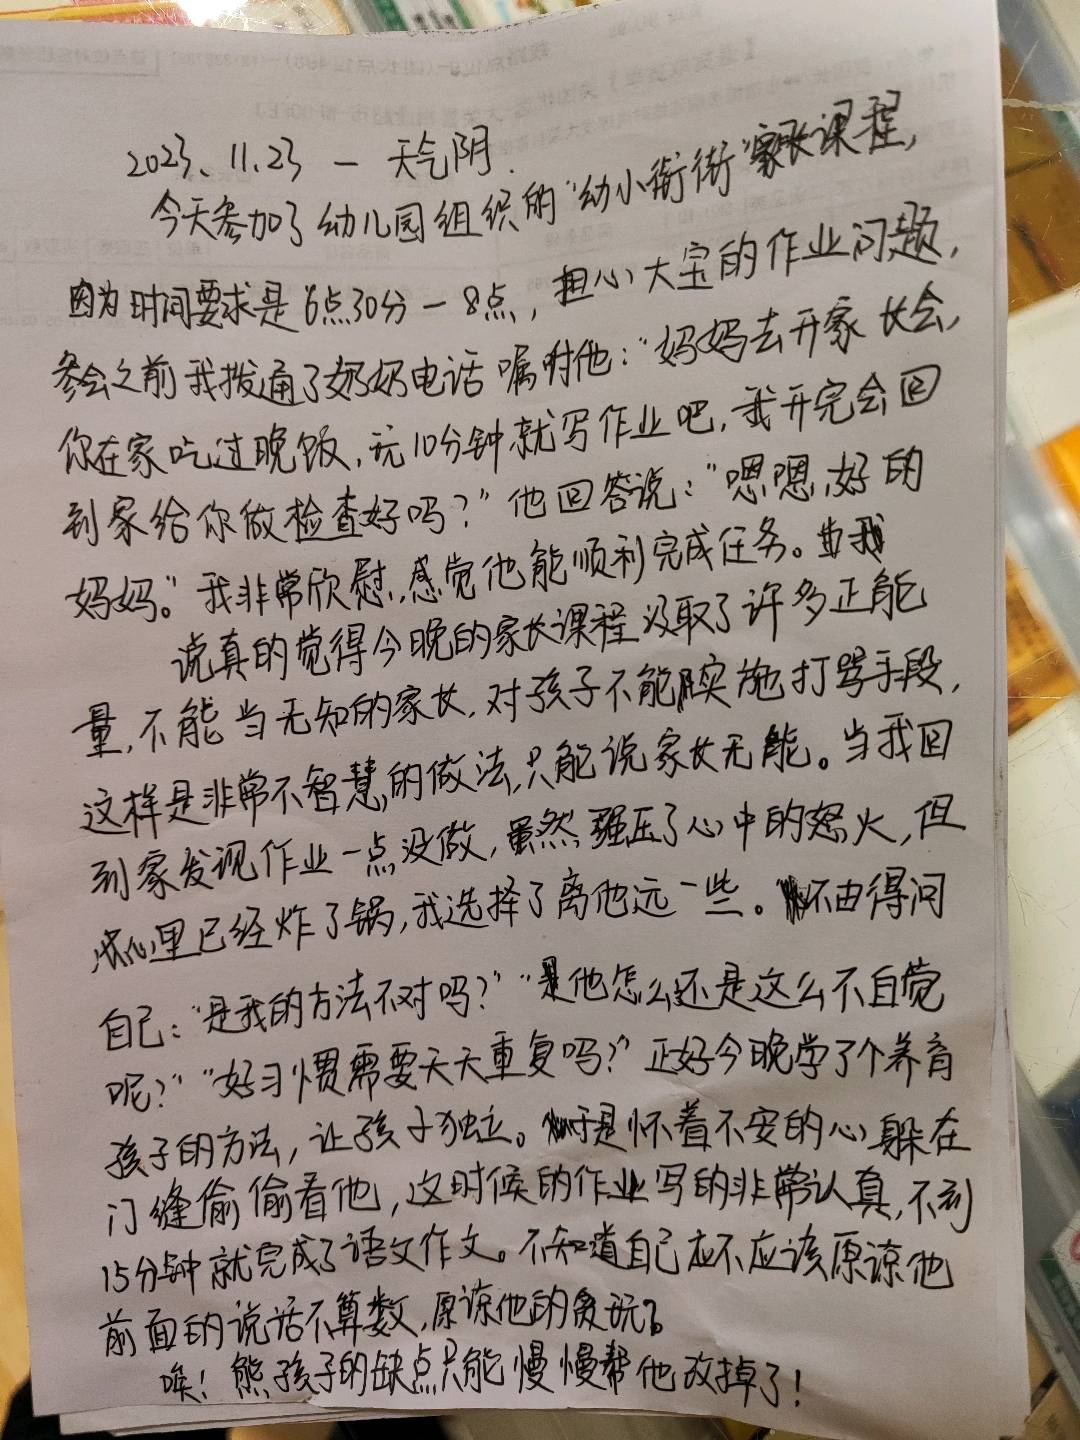 2023、11.23 — 天气阴.
今天参加了幼儿园组织的“幼小衔衔”家长课程,
因为时间要求是6点30分—8点，担心大宝的作业问题,
参会之前我拨通了奶奶电话嘱咐他：“妈妈去开家长会,
你在家吃过晚饭,玩10分钟就写作业吧,我开完会回
到家给你做检查好吗？”他回答说：“嗯嗯,好的
妈妈。”我非常欣慰,感觉他能顺利完成任务。
说真的觉得今晚的家长课程汲取了许多正能
量,不能当无知的家长,对孩子不能实施打骂手段,
这样是非常不智慧的做法,只能说家长无能。当我回
到家发现作业一点没做,虽然强压了心中的怒火,但
心里已经炸了锅,我选择了离他远一些。不由得问
自己：“是我的方法不对吗？”“是他怎么还是这么不自觉
呢？”“好习惯需要天天重复吗？”正好今晚学了个养育
孩子的方法，让孩子独立。于是怀着不安的心躲在
门缝偷偷看他，这时候的作业写的非常认真,不到
15分钟就完成了语文作文。不知道自己应不应该原谅他
前面的说话不算数,原谅他的贪玩？
唉！熊孩子的缺点只能慢慢帮他改掉了！